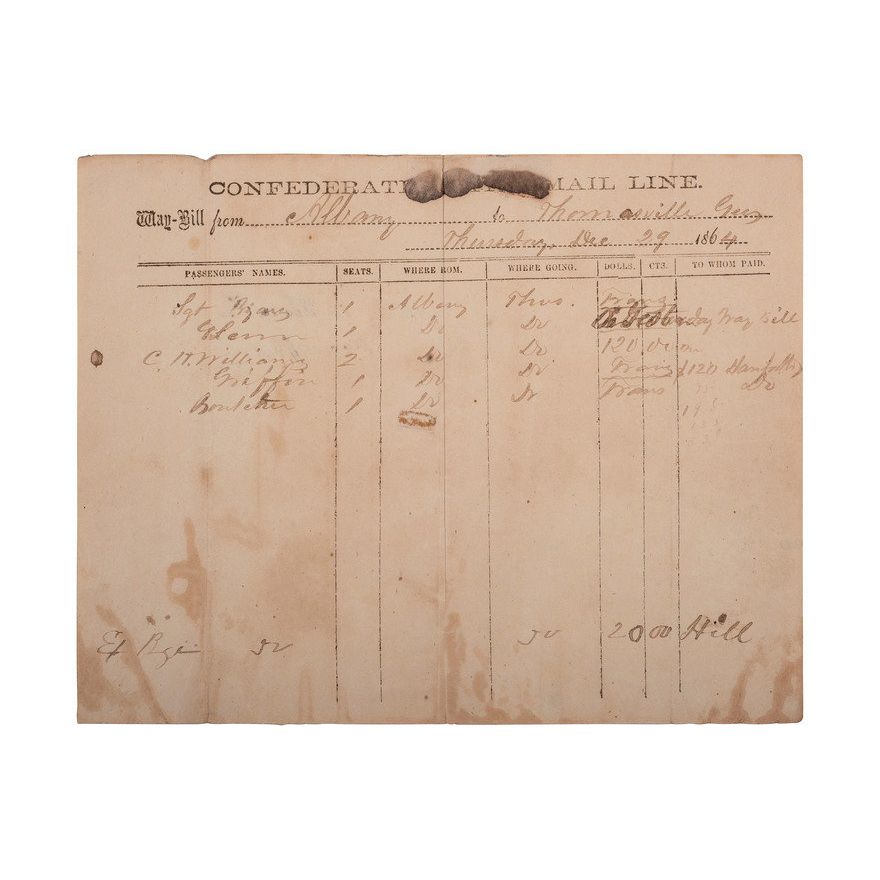 CONFEDERAT MAIL LINE.
Way-Bill from Albany to Thomasville Geo
Thursday, Dec 29 1864
PASSENGERS' NAMES. SEATS. WHERE ROM. WHERE GOING. DOLLS. CTS. TO WHOM PAID.
Sgt 1 Albany Thos. Trans
Glenn 1 Do Do Way Bill
C. H. Williams 2 Do Do 120 00
Griffin 1 Do Do Trans 120
1 Do Do Trans Do
Do
Ex 20 00 Hill